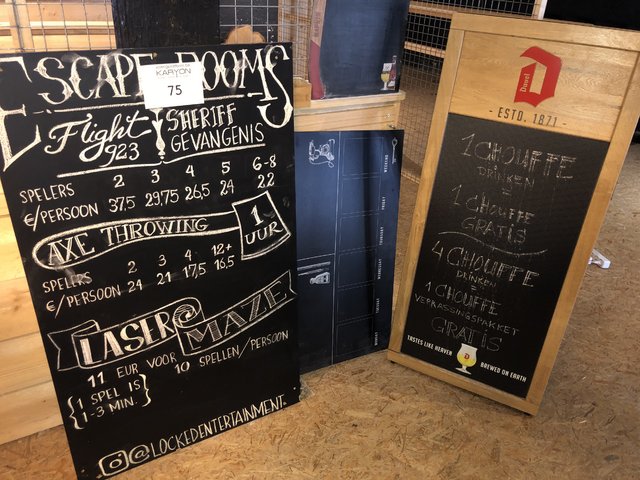 ESCAPE ROOMS
KARYON
75
Flight 923
SHERIFF GEVANGENIS
SPELERS 2 3 4 5 6-8
€/PERSOON 37,5 29,75 26,5 24 22
AXE THROWING
1 UUR
SPELERS 2 3 4 12+
€/PERSOON 24 21 17,5 16,5
LASER@
MAZE
11 EUR VOOR 10 SPELLEN/PERSOON
{1 SPEL IS
1-3 MIN.}
@LOCKEDENTERTAINMENT
WEEKEND
FRIDAY
THURSDAY
WEDNESDAY
TUESDAY
Duvel
- ESTD. 1871 -
1 CHOUFFE
DRINKEN
=
1 CHOUFFE
GRATIS
4 CHOUFFE
DRINKEN
=
1 CHOUFFE
VERRASSINGSPAKKET
GRATIS
TASTES LIKE HEAVEN
BREWED ON EARTH